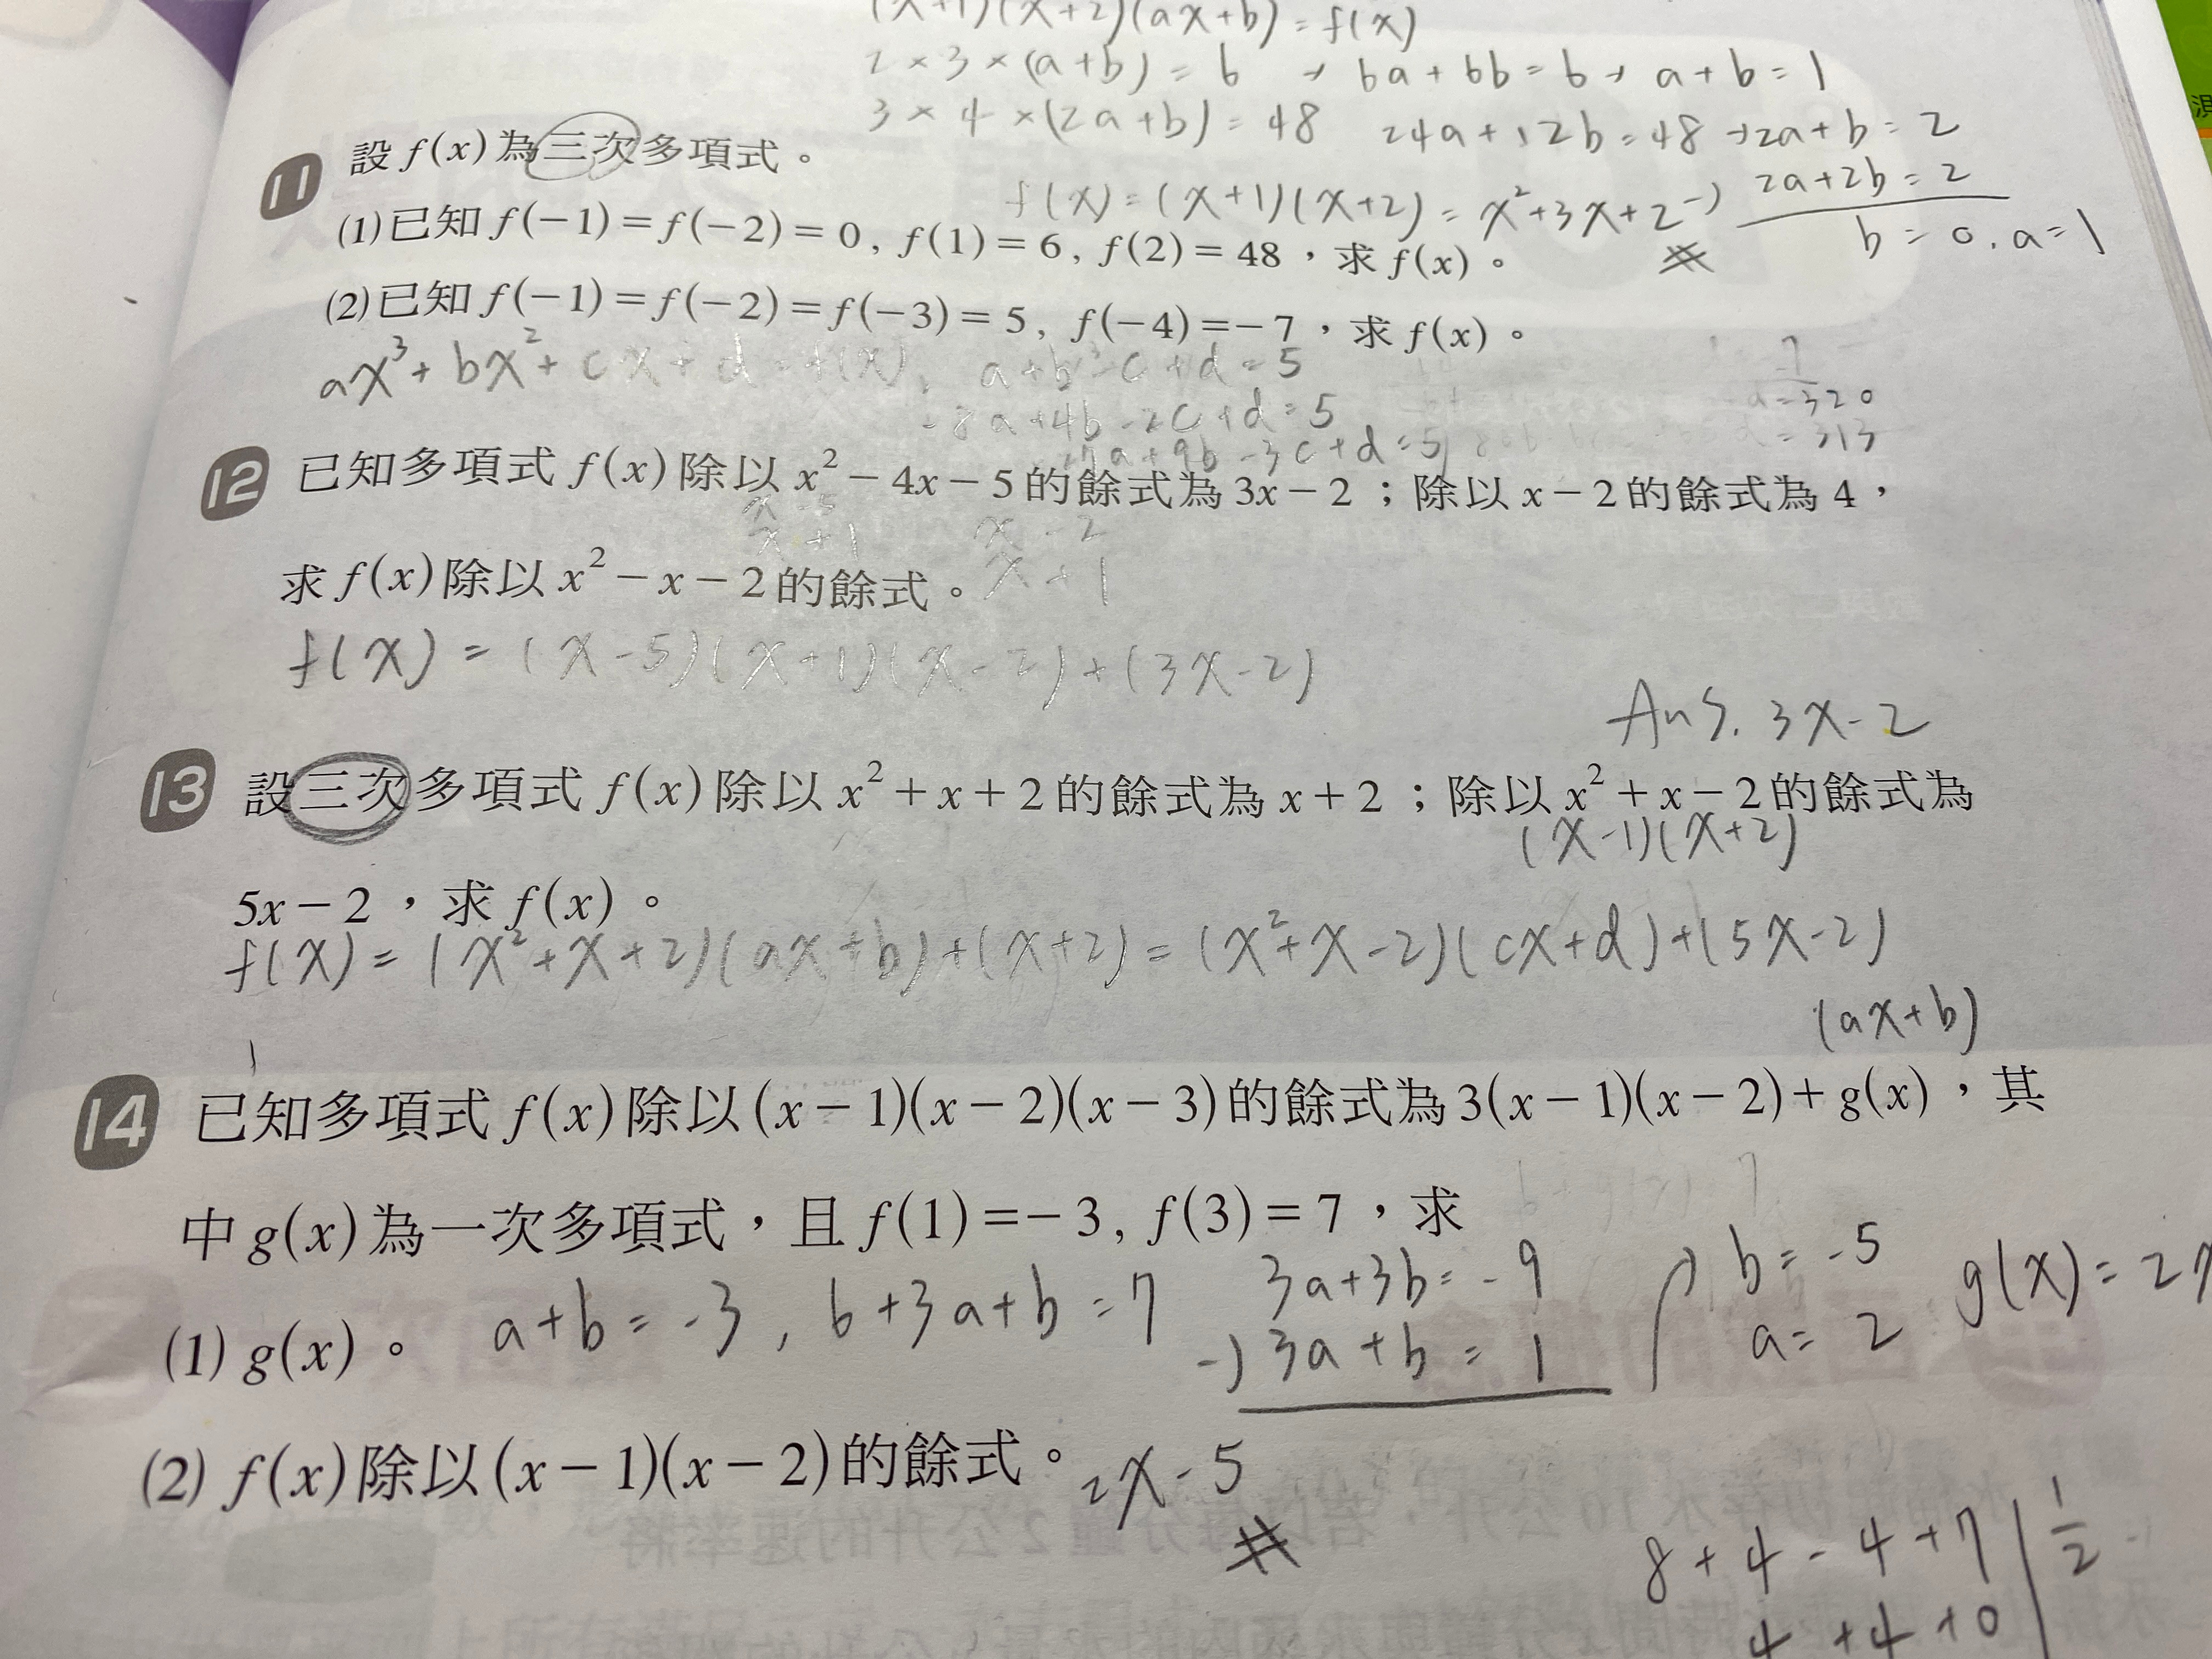 (x+1)(x+2)(ax+b)=f(x)
2×3×(a+b)=6 → 6a+6b=6 → a+b=1
3×4×(2a+b)=48 24a+12b=48 → 2a+b=2
11 設f(x)為三次多項式。
-) 2a+2b=2
f(x)=(x+1)(x+2)=x²+3x+2
b=0, a=1
(1)已知f(-1)=f(-2)=0, f(1)=6, f(2)=48，求f(x)。
(2)已知f(-1)=f(-2)=f(-3)=5, f(-4)=-7，求f(x)。
ax³+bx²+cx+d=f(x),
-8a+4b-2c+d=5
=320
=313
27a+9b-3c+d=5
12 已知多項式f(x)除以x²-4x-5的餘式為3x-2；除以x-2的餘式為4，
x -5
x +1
x -2
x +1
求f(x)除以x²-x-2的餘式。
f(x)=(x-5)(x+1)(x-2)+(3x-2)
Ans. 3x-2
13 設三次多項式f(x)除以x²+x+2的餘式為x+2；除以x²+x-2的餘式為
(x-1)(x+2)
5x-2，求f(x)。
f(x)=(x²+x+2)(ax+b)+(x+2)=(x²+x-2)(cx+d)+(5x-2)
(ax+b)
14 已知多項式f(x)除以(x-1)(x-2)(x-3)的餘式為3(x-1)(x-2)+g(x)，其
中g(x)為一次多項式，且f(1)=-3, f(3)=7，求
(1) g(x)。 a+b=-3, 6+3a+b=7
3a+3b=-9
-) 3a+b=1
b=-5
a=2
g(x)=2x
(2) f(x)除以(x-1)(x-2)的餘式。 2x-5
8+4-4+7 1/2
4+4+0